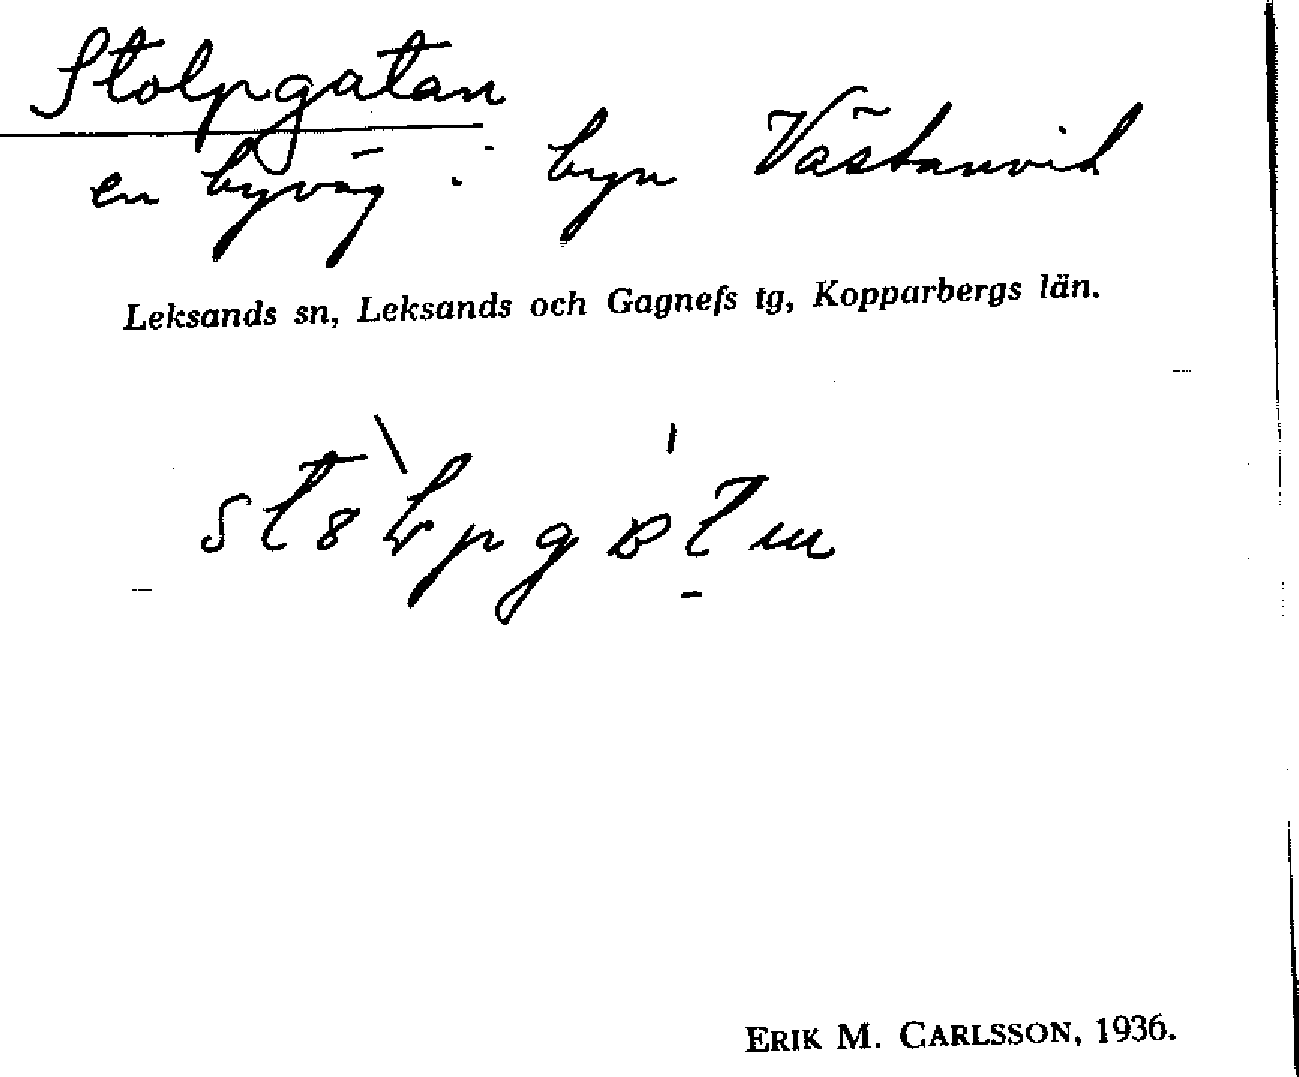 Stolpgatan
en byväg i byn Västanvik
Leksands sn, Leksands och Gagnefs tg, Kopparbergs län.
ERIK M. CARLSSON, 1936.